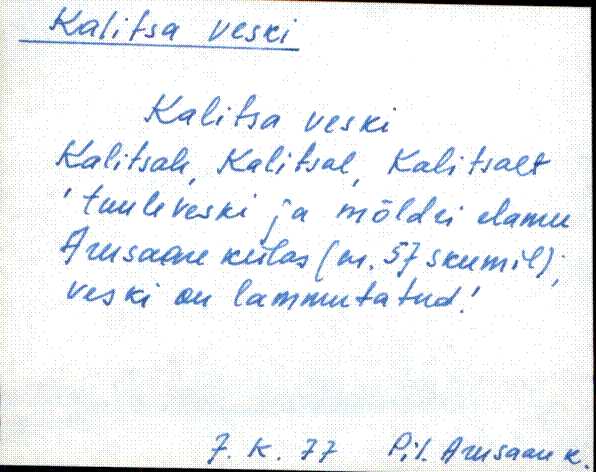 Kalitsa veski
Kalitsa veski
Kalitsah, Kalitsal, Kalitsalt
'tuuleveski ja möldri elamu
Arusaare külas (nr. 57 skeemil);
veski on lammutatud.'
7. K. 77 Pil. Arusaare k.